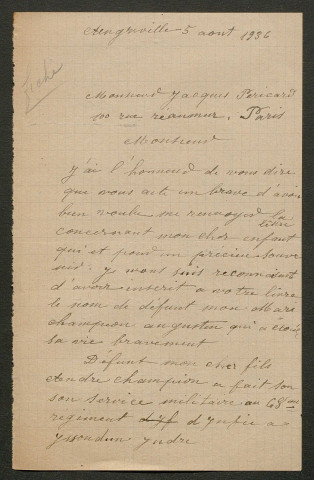 Angreville 5 aout 1936
fiché
Monsieur Jacques Péricard
rue réaumur, Paris
Monsieur
y'ai l'honneur de vous dire
que vous aite un brave d'avoir
bien voulu me renvoyer la
lettre
concernant mon cher enfant
qui et pour un précieux souve
nir. je vous suis reconnaisant
d'avoir inscrit a votre livre
le nom de défunt mon Mari
champion augustin qui a
sa vie bravement
Défunt mon cher fils
Andre champion a fait son
son service militaire au 68 eme
regiment d'ynf a
yssoudun yndre